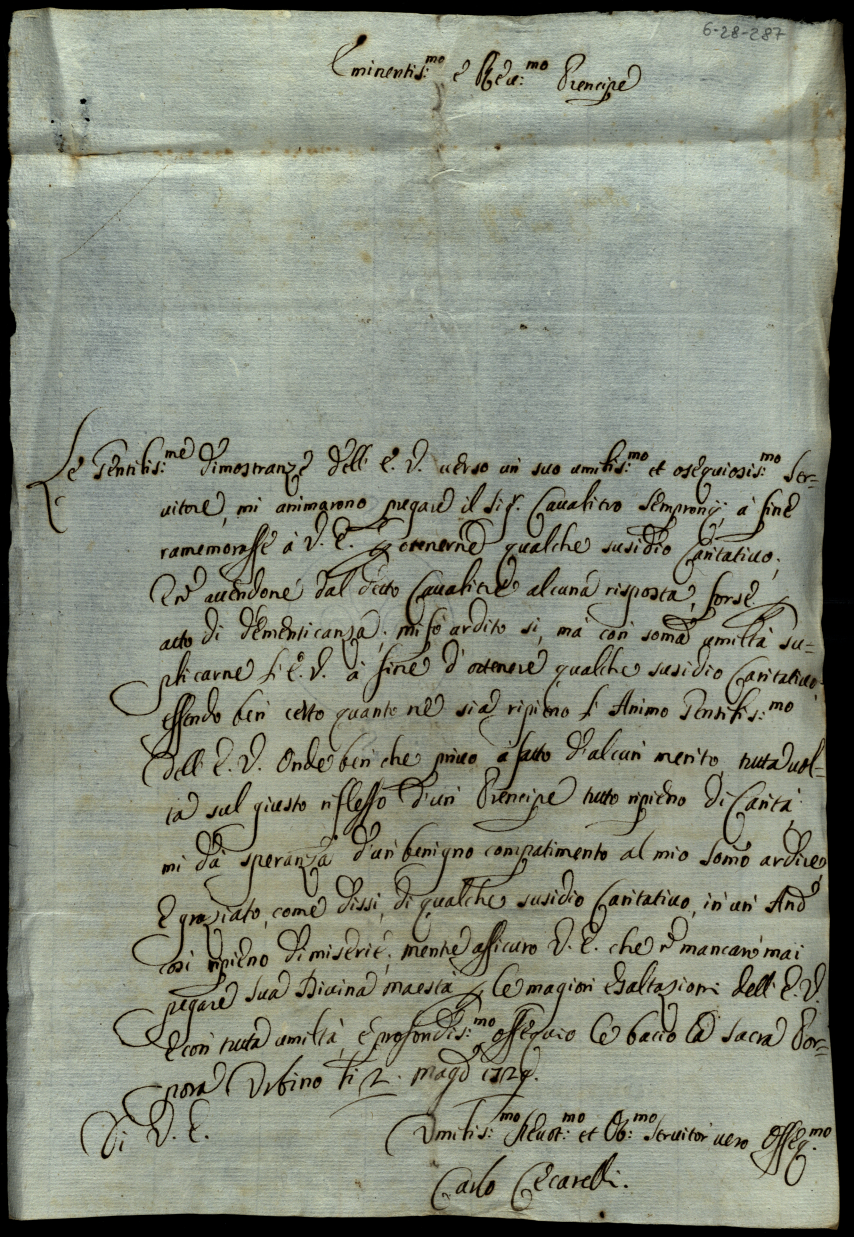 6-28-287
Eminentis:mo e Rev:mo Prencipe
Le Gentilis:me dimostranze dell' E. V. verso un suo umilis:mo et osequiosis:mo ser=
uitore, mi animarono pregare il Sig.r Caualiero Sempronij, à fine
ramemorasse à V. E. p otenerne qualche susidio Caritatiuo;
auendone dal detto Caualiere alcuna risposta, forse p
atto di dementicanza; mi fò ardito si, mà con soma umiltà su=
plicarne l'E. V. à fine d'ottenere qualche susidio Caritatiuo,
essendo ben certo quanto ne sia ripieno l'Animo Gentilis:mo
dell' E. V. Onde ben che priuo à fatto d'alcun merito, tutta uol=
ta sul giusto riflesso d'un Prencipe tutto ripieno di Carità
mi dà speranza d'un benigno compatimento al mio somo ardire,
E graziato, come dissi, di qualche susidio Caritatiuo, in un And
cosi ripieno di miserie; mentre assicuro V. E. che mancarò mai
pregare Sua Diuina Maestà p le magiori Esaltazioni dell' E. V.
E con tutta umiltà, e profondis:mo ossequio le baccio la sacra Por=
pora Urbino li 2. Magd 1729.
Di V. E.
Umilis:mo Deuot:mo et Ob:mo seruitor uero Osseq:mo
Carlo Cecarelli.